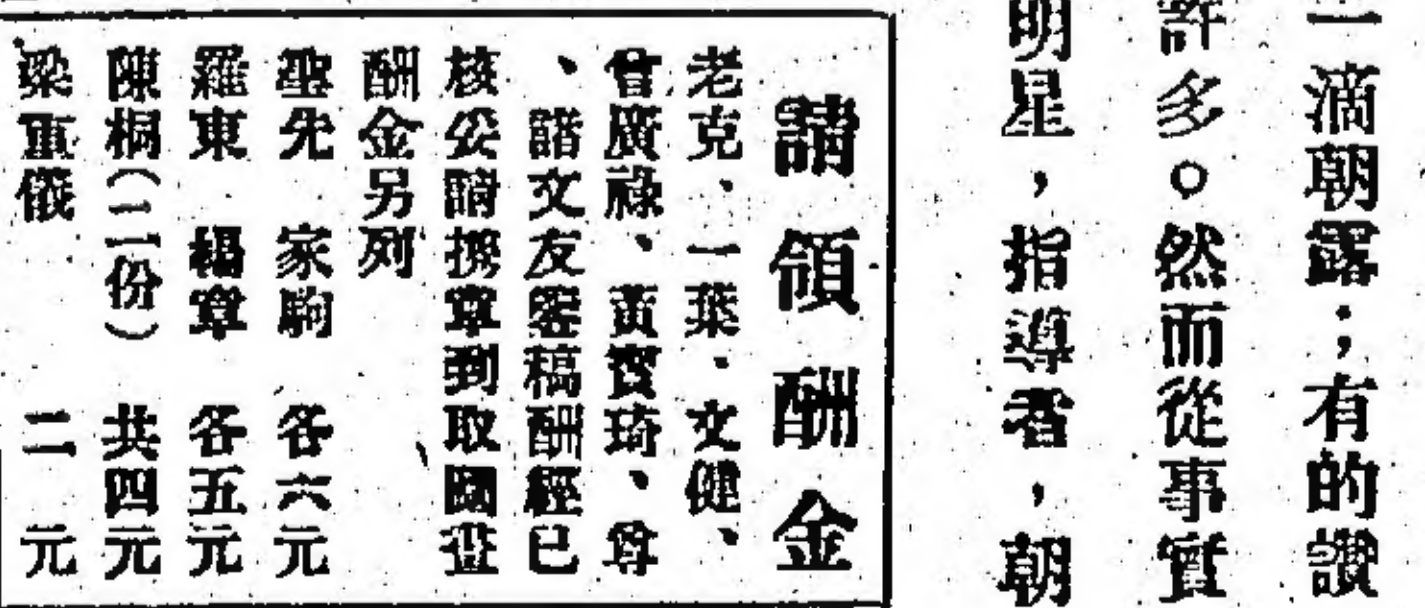 一滴朝露；有的讚
許多。然而從事實
明星，指導者，朝
請領酬金
老克、一葉、文健、
曾廣祿、黃寶琦、曾
、諸文友圖稿酬經已
核公請携章到取圖
酬金另列
聖允 家駒 各六元
羅東 楊章 各五元
陳桐（二份） 共四元
梁重儀 二元